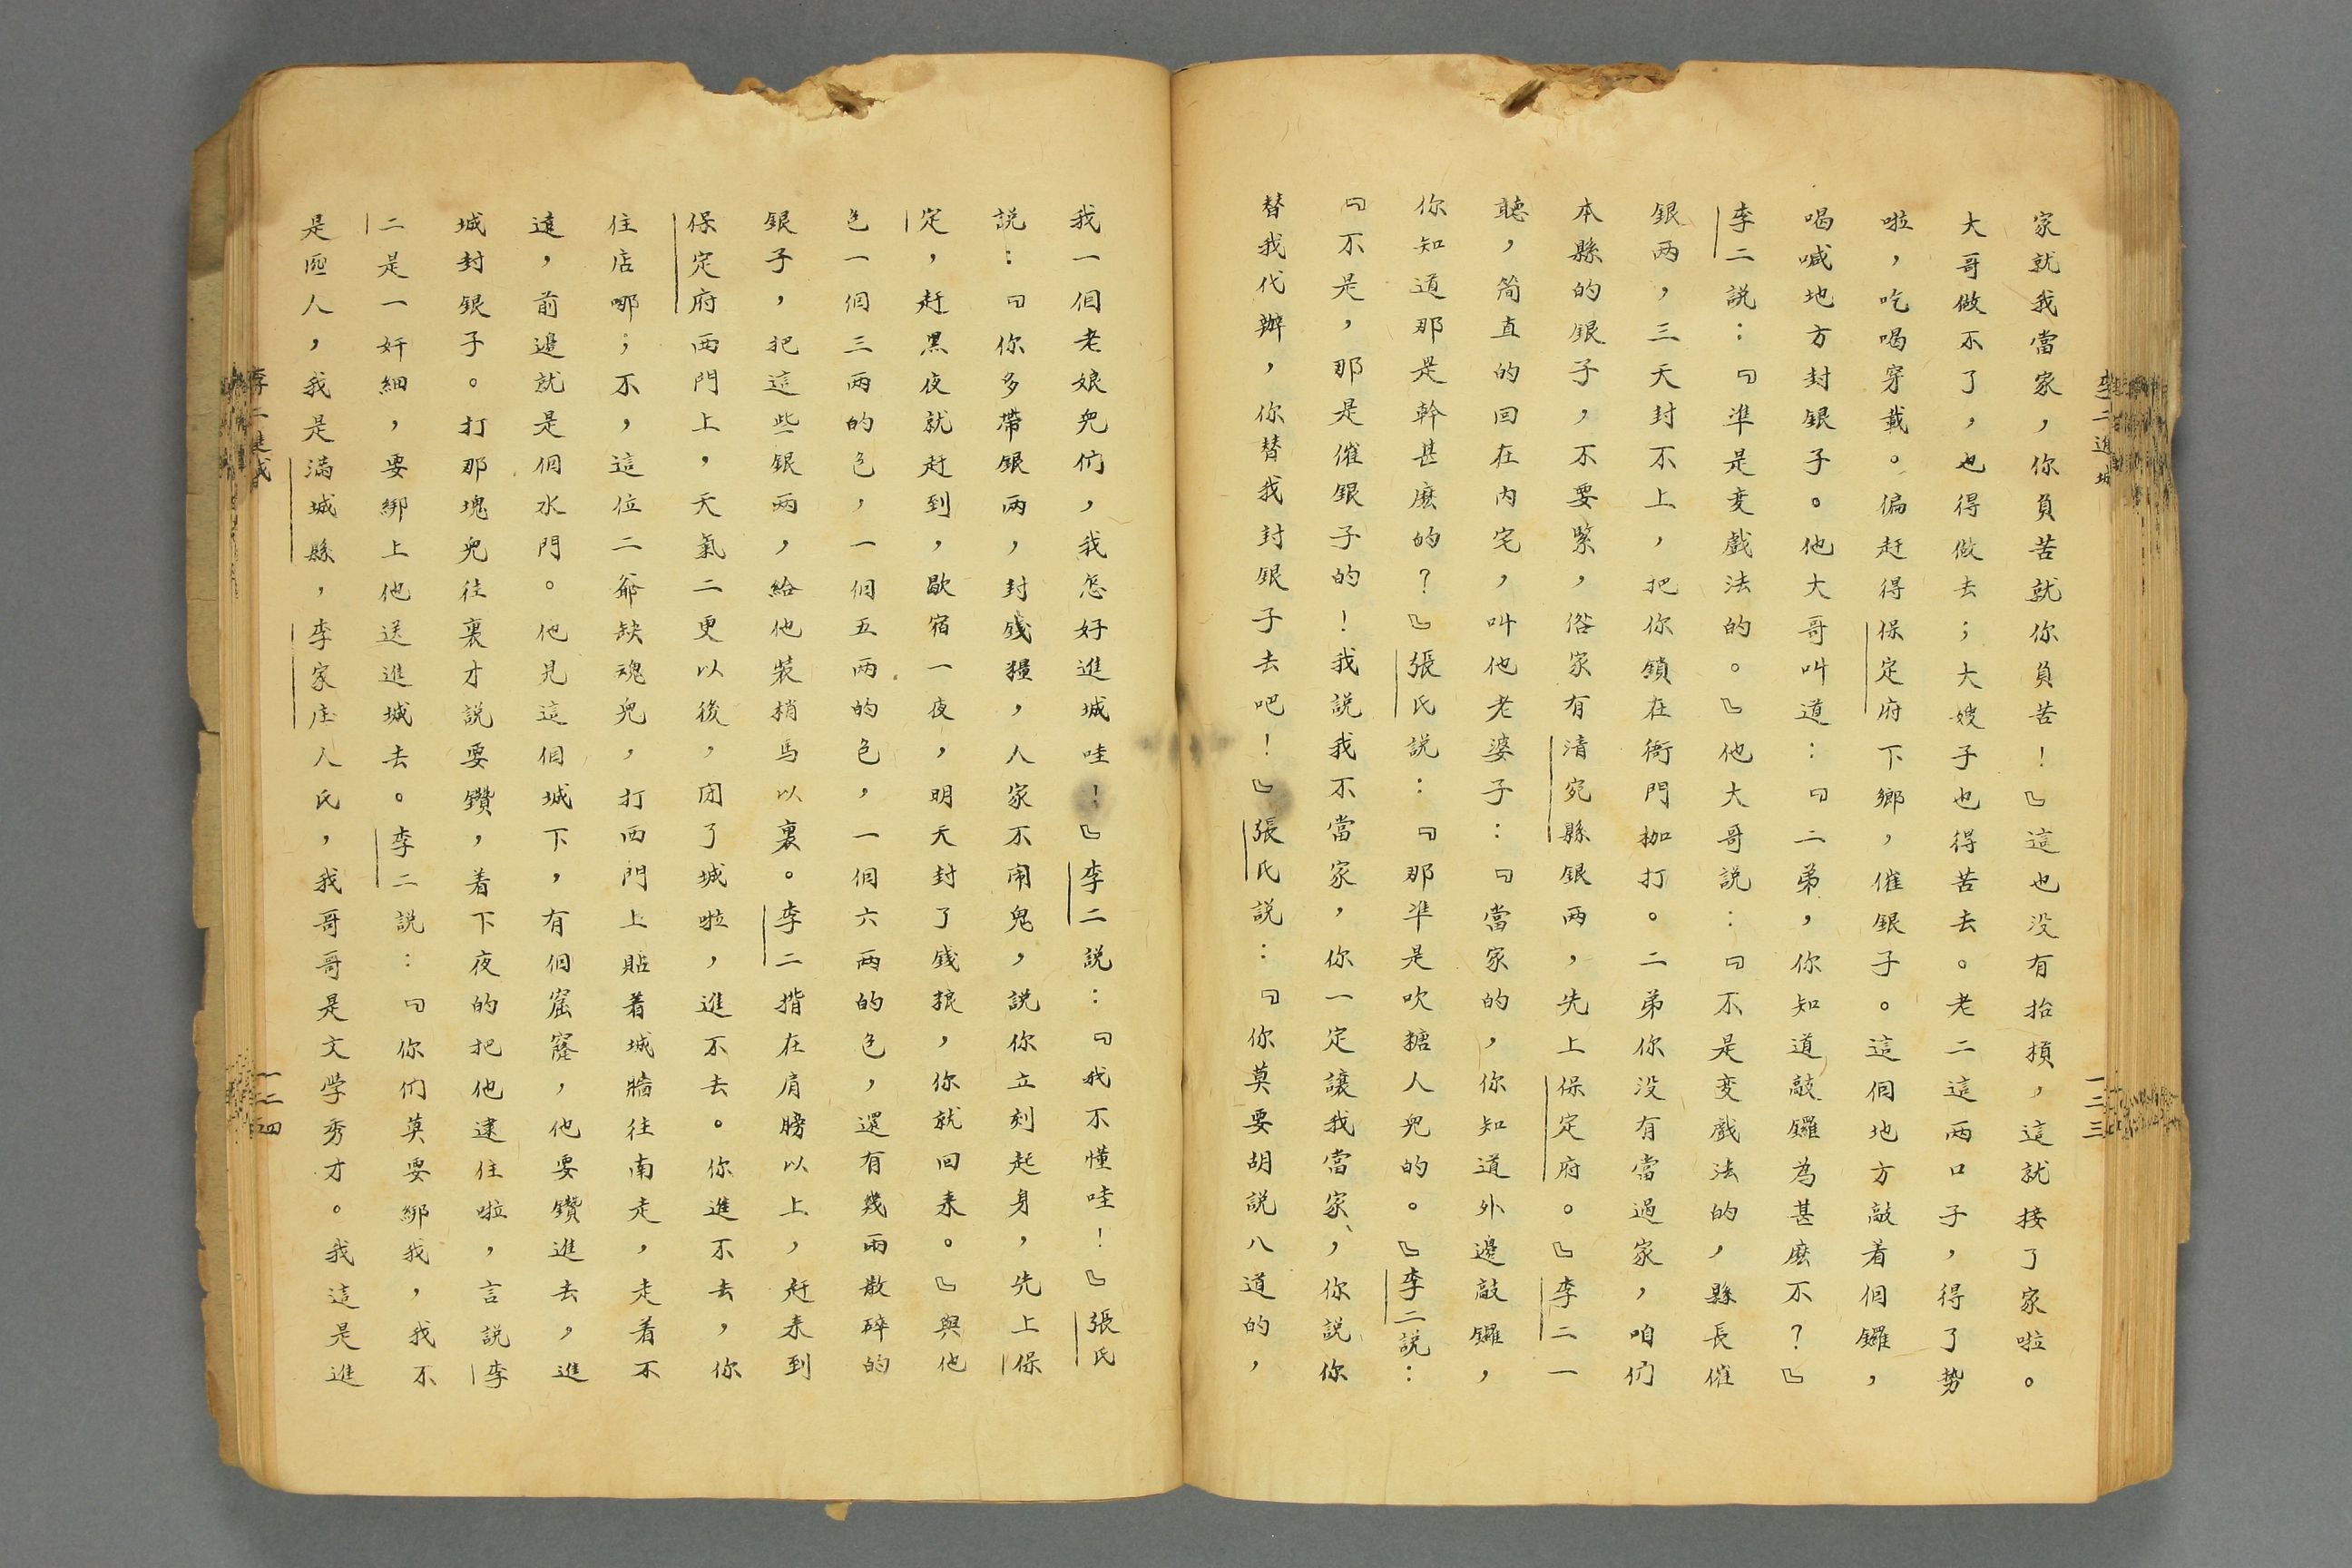 李二進城
一二三
家就我當家，你負苦就你負苦！』這也没有抬損，這就接了家啦。
大哥做不了，也得做去；大嫂子也得苦去。老二這兩口子，得了势
啦，吃喝穿載。偏赶得保定府下鄉，催銀子。這個地方敲着個鑼，
喝喊地方封銀子。他大哥叫道：『二弟，你知道敲鑼為甚麽不？』
李二説：『準是变戲法的。』他大哥説：『不是变戲法的，縣長催
銀两，三天封不上，把你鎖在衙門枷打。二弟你没有當過家，咱们
本縣的銀子，不要緊，俗家有清宛縣銀两，先上保定府。』李二一
聽，简直的回在内宅，叫他老婆子：『當家的，你知道外邊敲鑼，
你知道那是幹甚麽的？』張氏説：『那準是吹糖人兒的。』李二説：
『不是，那是催銀子的！我説我不當家，你一定讓我當家，你説你
替我代辦，你替我封銀子去吧！』張氏説：『你莫要胡説八道的，
我一個老娘兒们，我怎好進城哇！』李二説：『我不懂哇！』張氏
説：『你多帶銀两，封錢糧，人家不闹鬼，説你立刻起身，先上保
定，赶黑夜就赶到，歇宿一夜，明天封了錢糧，你就回来。』與他
包一個三两的包，一個五两的包，一個六两的包，還有幾两散碎的
銀子，把這些銀两，給他裝梢馬以裏。李二揹在肩膀以上，赶来到
保定府西門上，天氣二更以後，闭了城啦，進不去。你進不去，你
住店哪；不，這位二爺缺魂兒，打西門上貼着城牆往南走，走着不
遠，前邊就是個水門。他見這個城下，有個窟窿，他要鑽進去，進
城封銀子。打那塊兒往裏才説要鑽，着下夜的把他逮住啦，言説李
二是一奸細，要綁上他送進城去。李二説：『你们莫要綁我，我不
是匪人，我是滿城縣，李家庄人氏，我哥哥是文学秀才。我這是進
李二進城
一二四